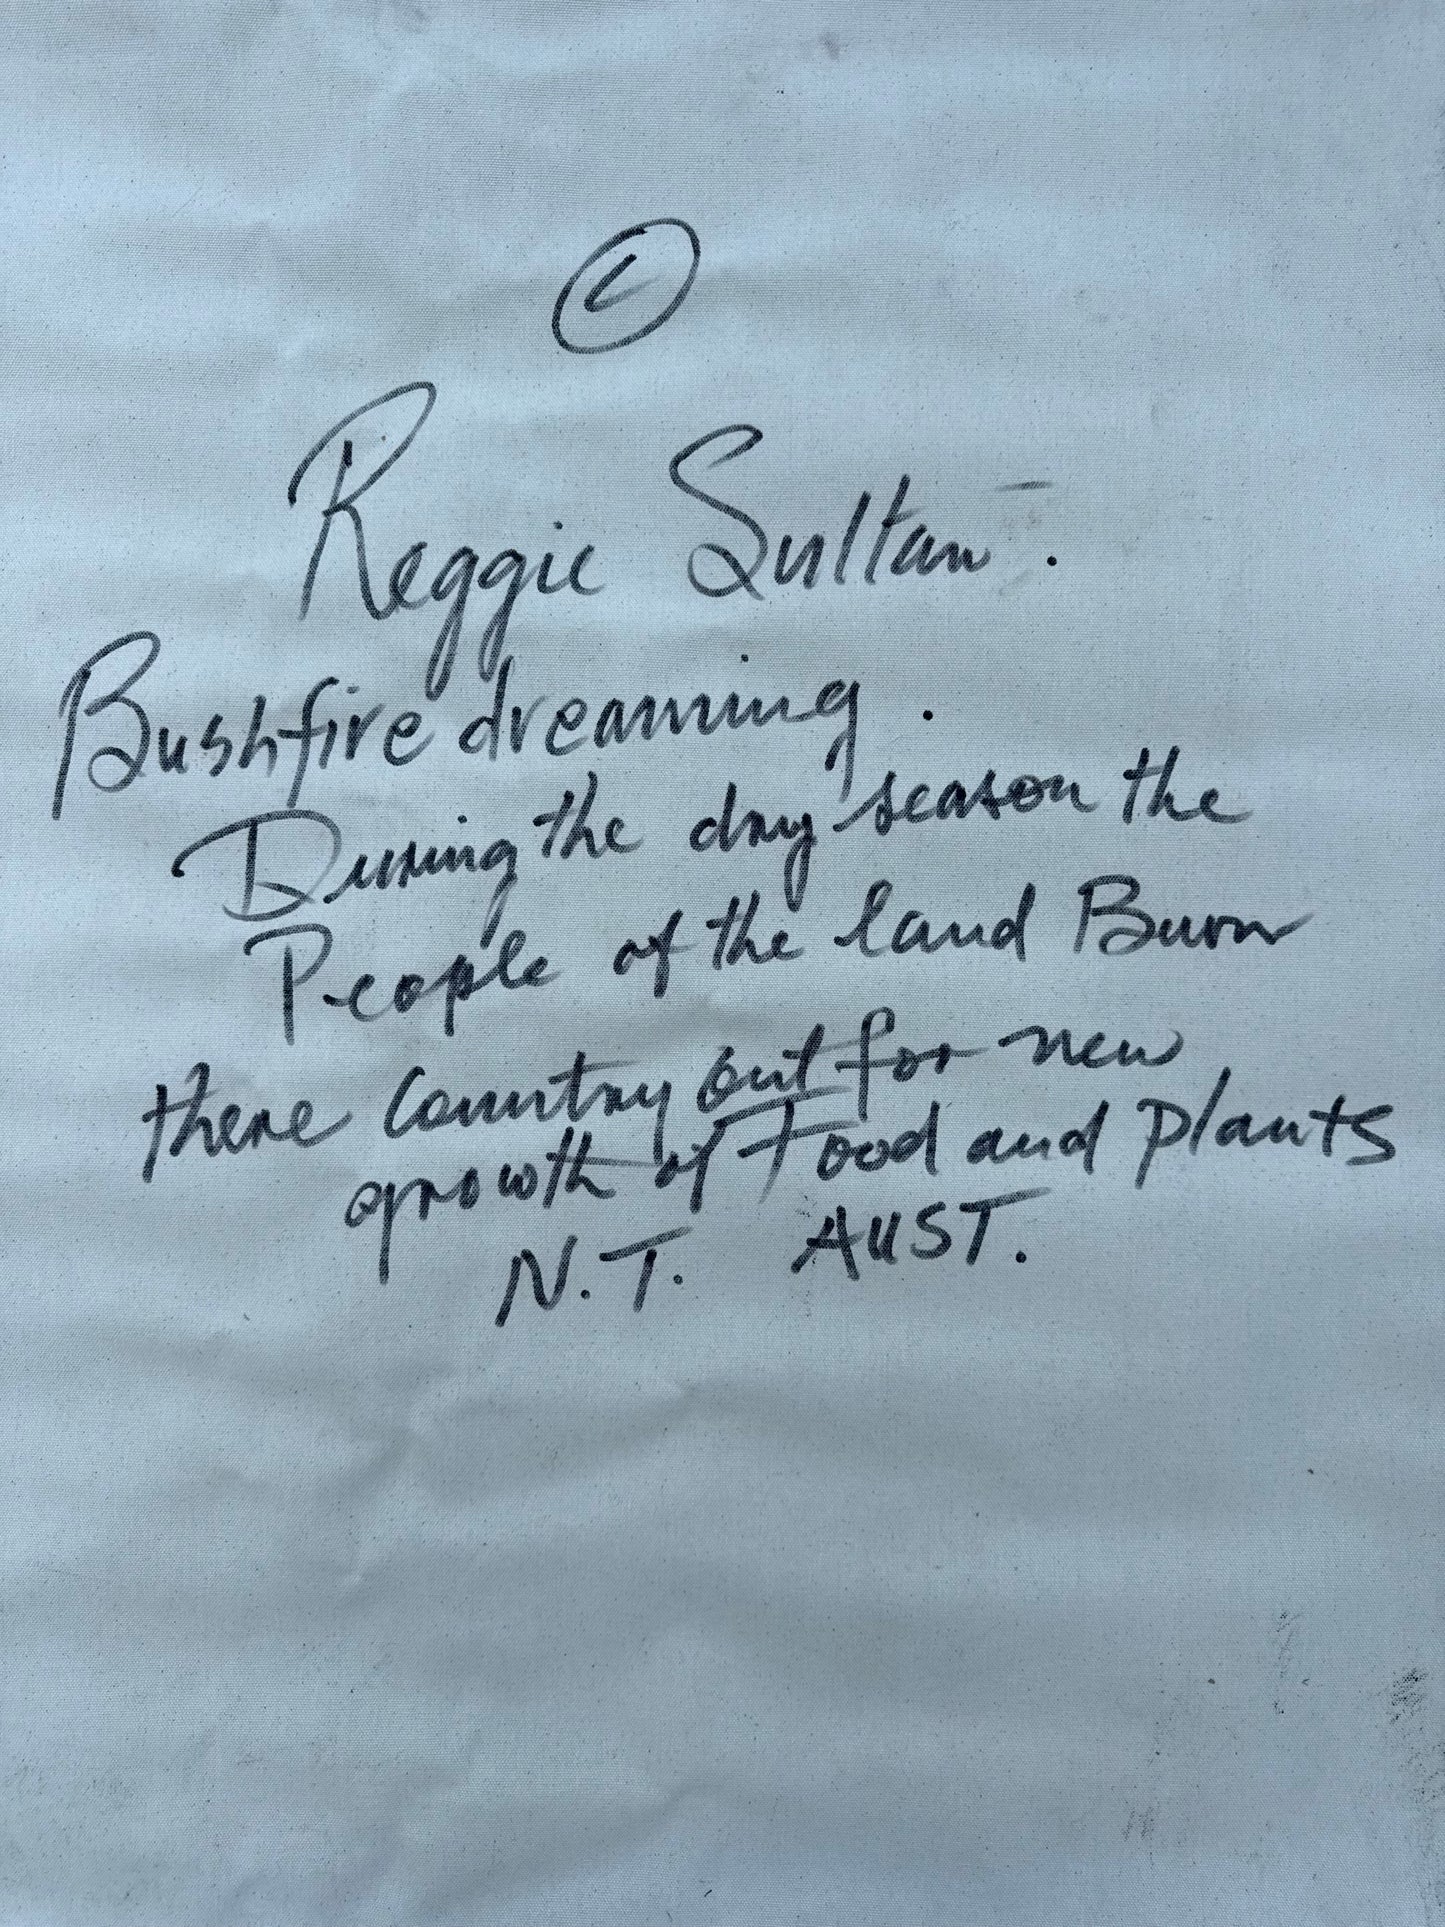 ©
Reggie Sultan - .
Bushfire dreaming .
During the dry season the
People of the land Burn
there Country out for new
growth of Food and plants
N.T. AUST.